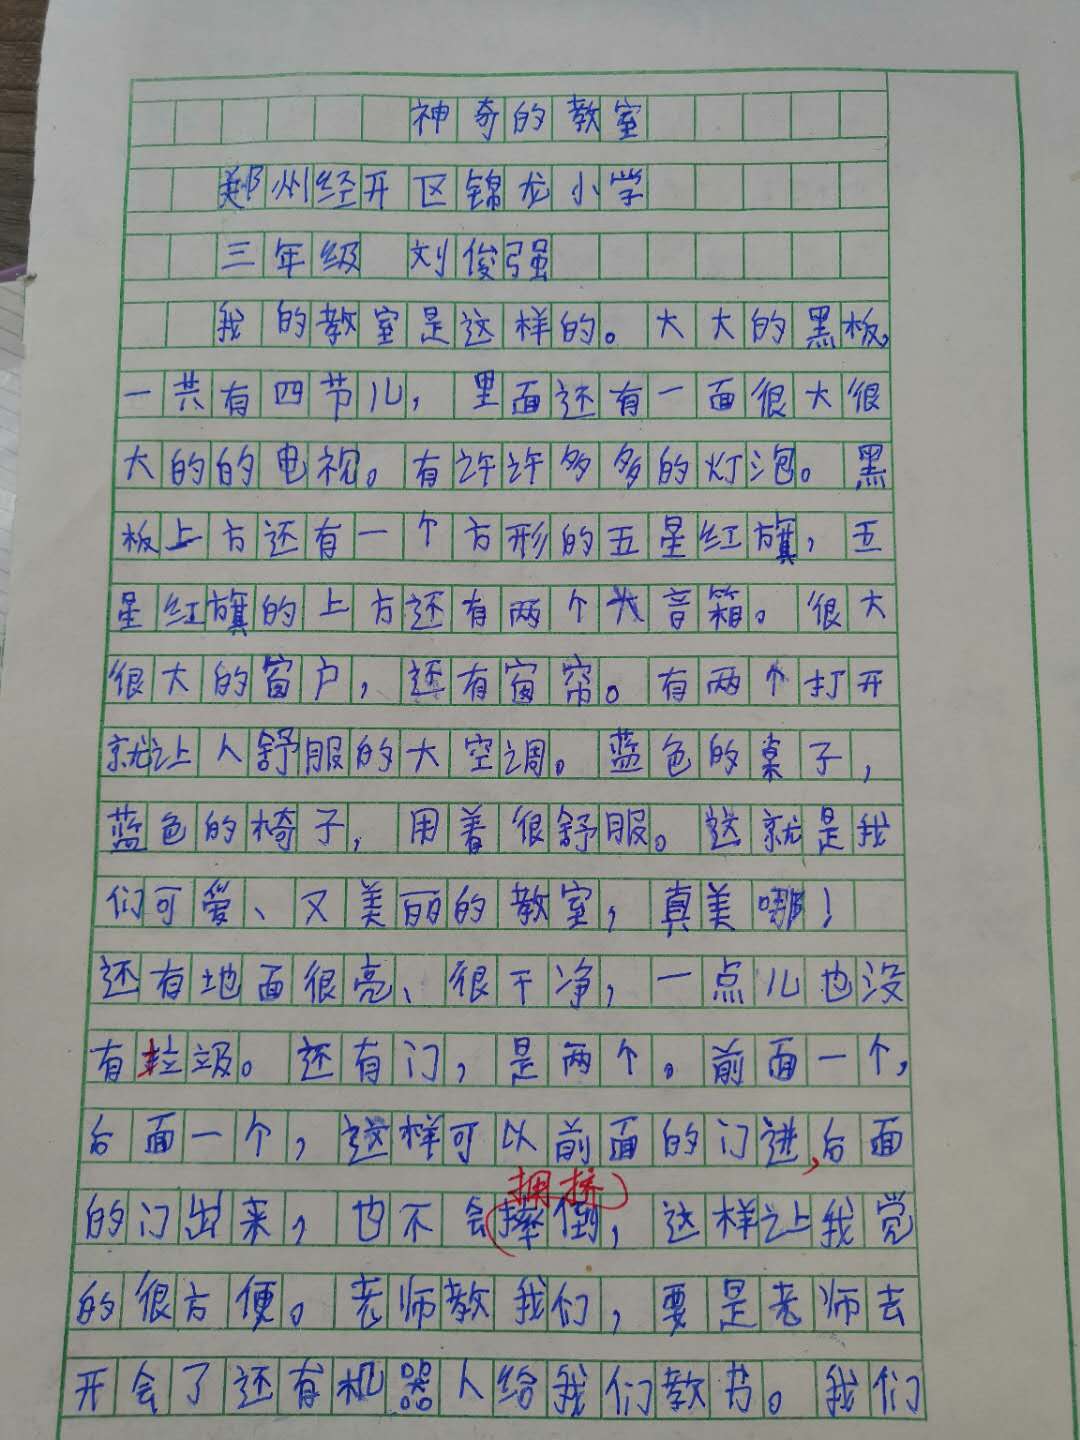 神奇的教室
郑州经开区锦龙小学
三年级 刘俊强
我的教室是这样的。大大的黑板,
一共有四节儿，里面还有一面很大很
大的的电视。有许许多多的灯泡。黑
板上方还有一个方形的五星红旗，五
星红旗的上方还有两个大音箱。很大
很大的窗户，还有窗帘。有两个打开
就让人舒服的大空调。蓝色的桌子，
蓝色的椅子，用着很舒服。这就是我
们可爱、又美丽的教室，真美哪！
还有地面很亮、很干净，一点儿也没
有垃圾。还有门，是两个。前面一个，
后面一个，这样可以前面的门进,后面
拥挤
的门出来，也不会摔倒，这样让我觉
的很方便。老师教我们，要是老师去
开会了还有机器人给我们教书。我们